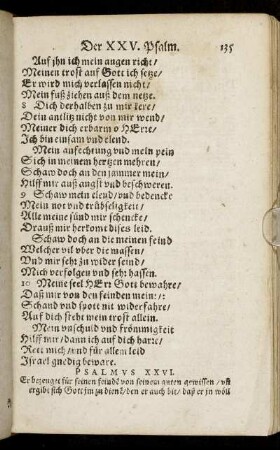 Der XXV. Psalm. 135
Auf jhn ich mein augen richt/
Meinen trost auf Gott ich setze/
Er wird mich verlassen nicht/
Mein fuß ziehen auß dem netze.
8 Dich derhalben zu mir kere/
Dein antlitz nicht von mir wend/
Meiner dich erbarm o HErre/
Ich bin einsam vnd elend.
Mein anfechtung vnd mein pein
Sich in meinem hertzen mehren/
Schaw doch an den jammer mein/
Hilff mir auß angst vnd beschweren.
9 Schaw mein elend/ vnd bedencke
Mein not vnd trübseligkeit/
Alle meine sünd mir schencke/
Drauß mir herkomt dises leid.
Schaw doch an die meinen feind
Welcher vil vber die massen/
Vnd mir sehr zu wider seind/
Mich verfolgen vnd sehr hassen.
10 Meine seel HErr Gott bewahre/
Daß mir von den feinden mein:/:
Schand vnd spott nit widerfahre/
Auf dich steht mein trost allein.
Mein vnschuld vnd frömmigkeit
Hilff mir/ dann ich auf dich harre/
Rett mich/ vnd für allem leid
Israel gnedig beware.
PSALMVS XXVI.
Er bezeuget für seinen feindē von seinem guten gewissen/ vñ
ergibt sich Gott jm zu dienē/ den er auch bit/ daß er jn wöll